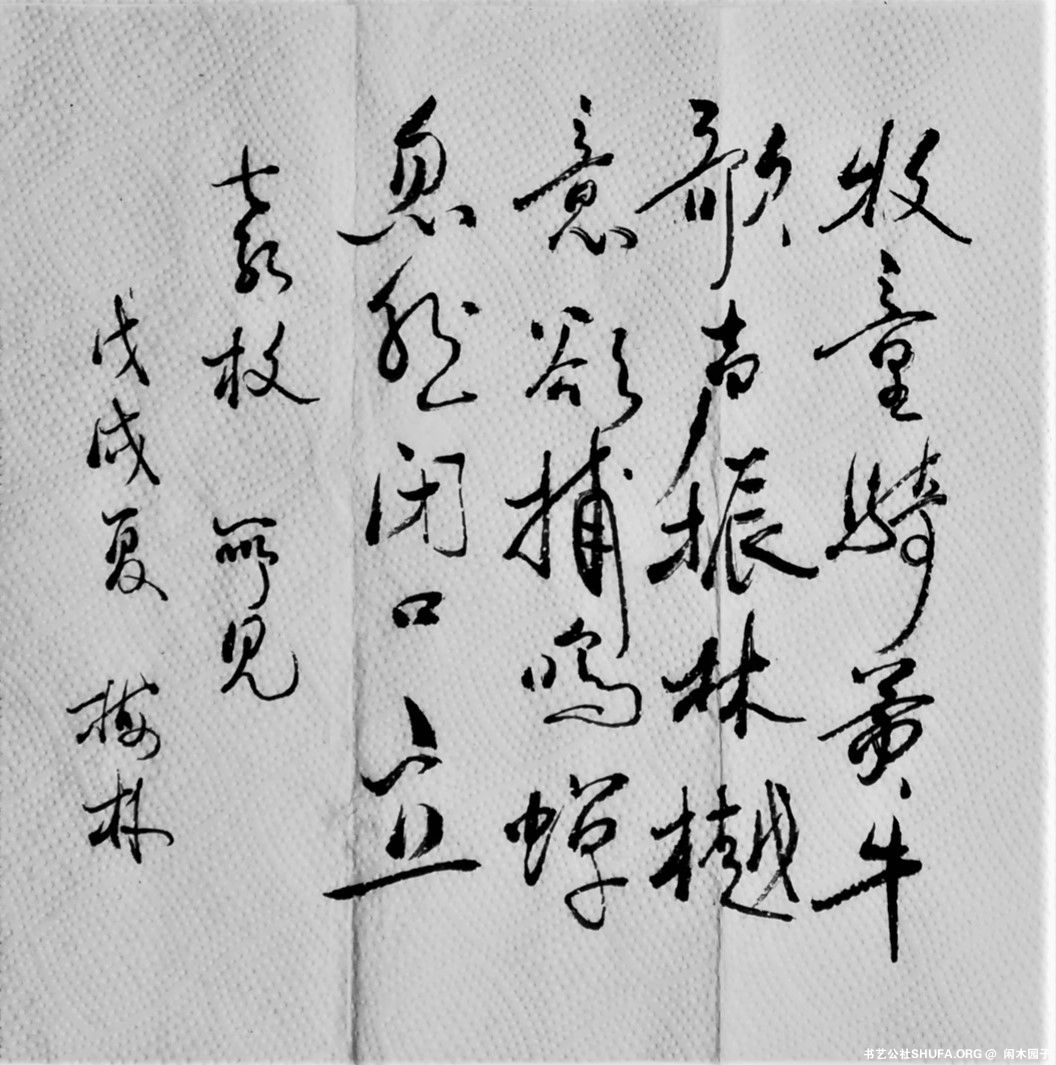 牧童騎黄牛
歌声振林樾
意欲捕鳴蟬
忽然闭口立
袁枚 所見
戊戌夏 梅林
书艺公社SHUFA.ORG @ 闲木园子